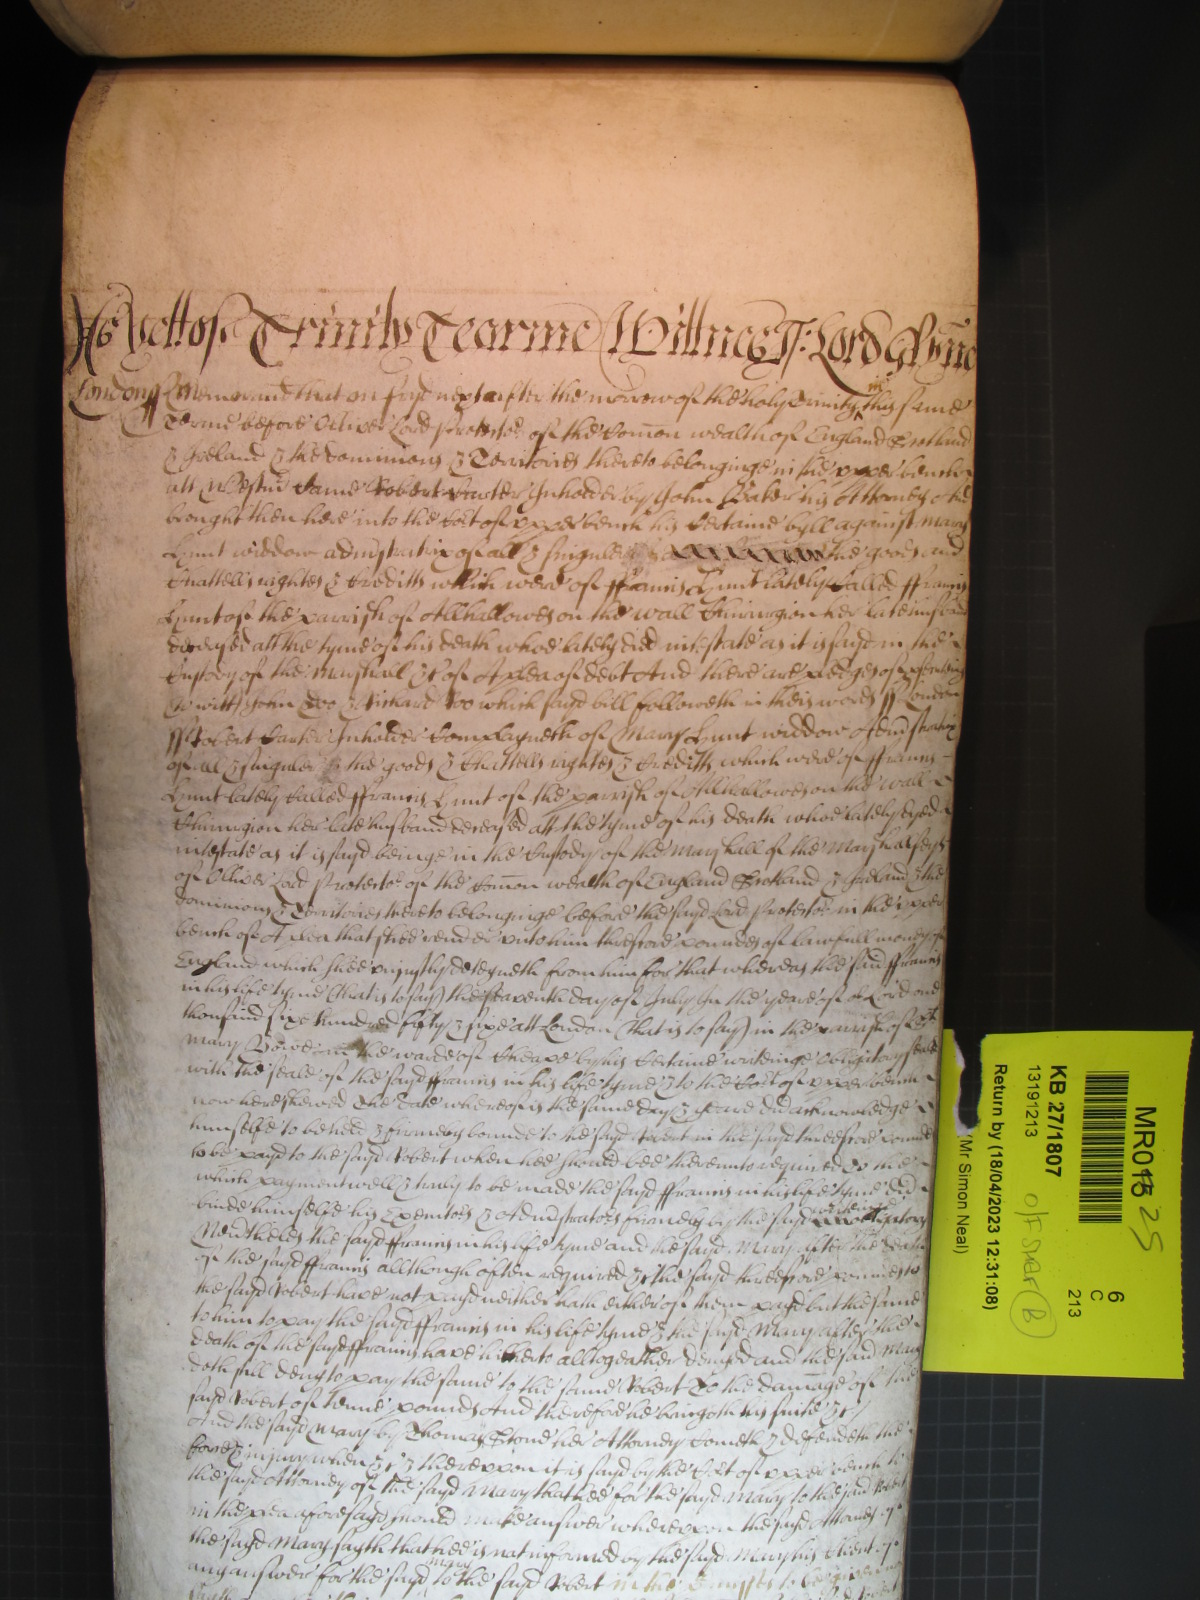 As yett of Trinity Tearme Wittnes J: Lord Glynne
London ss Memorand that on fryd next after the morrow of the holy Trinity in this same
Terme before Oliver Lord Protector of the Comon wealth of England Scotland
& Ireland & the dominions & Territories thereto belonginge in the upper bench
att Westm Came Robert Carter Inholder by John Baker his Attorney And
brought then here into the Cort of upper bench his Certaine byll against Mary
Hunt widdow admstratrix of all & singuler the goods and
Chattells rightes & Creditts which were of ffrancis Hunt lately Called ffrancis
Hunt of the parrish of Allhallowes on the wall Chirurgion her late husband
deceased att the tyme of his death whoe lately died intestate as it is sayd in the
Custody of the Marshall &c of A plea of debt And there are pledges of
to witt John Doo & Richard Roo which sayd bill followeth in theis words ss London
ss Robert Carter Inholder Complayneth of Mary Hunt widdow Admstratrix
of all & singuler the goods & Chattells rightes & Creditts which were of ffrancis
Hunt lately Called ffrancis Hunt of the parrish of Allhallowes on the wall
Chirurgion her late husband deceased att the tyme of his death whoe lately dyed
intestate as it is sayd beinge in the Custody of the Marshall of the Marshallseys
of Olliver Lord Protector of the Comon wealth of England Scotland & Ireland & the
dominions & Territories thereto belonginge before the sayd Lord Protector in the upper
bench of A plea that shee render unto him threscore poundes of lawfull money of
England which shee uniustly deteyneth from him for that whereas the said ffrancis
in his life tyme (that is to say) the seaventh day of July In the yeare of or Lord one
thousand sixe hundred fifty & sixe att London (that is to say) in the parrish of St
Mary Bowe in the warde of Cheape by his Certaine writeinge obligatory seald
with the seale of the sayd ffrancis in his life tyme & to the Cort of upper bench
now here shewed the date whereof is the same day & yeare did acknowledge
himselfe to be held & firmely bounde to the sayd Robert in the sayd threscore pounds
to be payd to the sayd Robert when hee should bee thereunto required To the
which payment well & truly to be made the sayd ffrancis in his life tyme did
binde himselfe his Executors & Admstrators firmely by the sayd writeinge obligatory
Neverthelesse the sayd ffrancis in his life tyme and the sayd Mary after the death
of the sayd ffrancis allthough often required &c the sayd threescore pounds to
the sayd Robert have not payd neither hath either of them payd but the same
to him to pay the sayd ffrancis in his life tyme & the sayd Mary after the
death of the sayd ffrancis have hitherto alltogeather denyed and the said Mary
doth still deny to pay the same to the same Robert To the damage of the
sayd Robert of tenne pounds And therefore he bringeth his suite &c
And the sayd Mary by Thomas Stone her Attorney Cometh & defendeth the
force & iniury when &c & thereupon it is sayd by the Cort of upper bench to
the sayd Attorney of the sayd Mary that hee for the sayd Mary to the said Robert
in the plea aforesayd should make answer whereupon the sayd Attorney of
the sayd Mary sayth that hee is not informed by the sayd Mary his Client of
any answer for the sayd Mary to the sayd Robert in the premisses to be given
MR015 25
6
C
213
KB 27/1807
13191213
O/F Shelf (B)
Return by (18/04/2023 12:31:08)
(Mr Simon Neal)